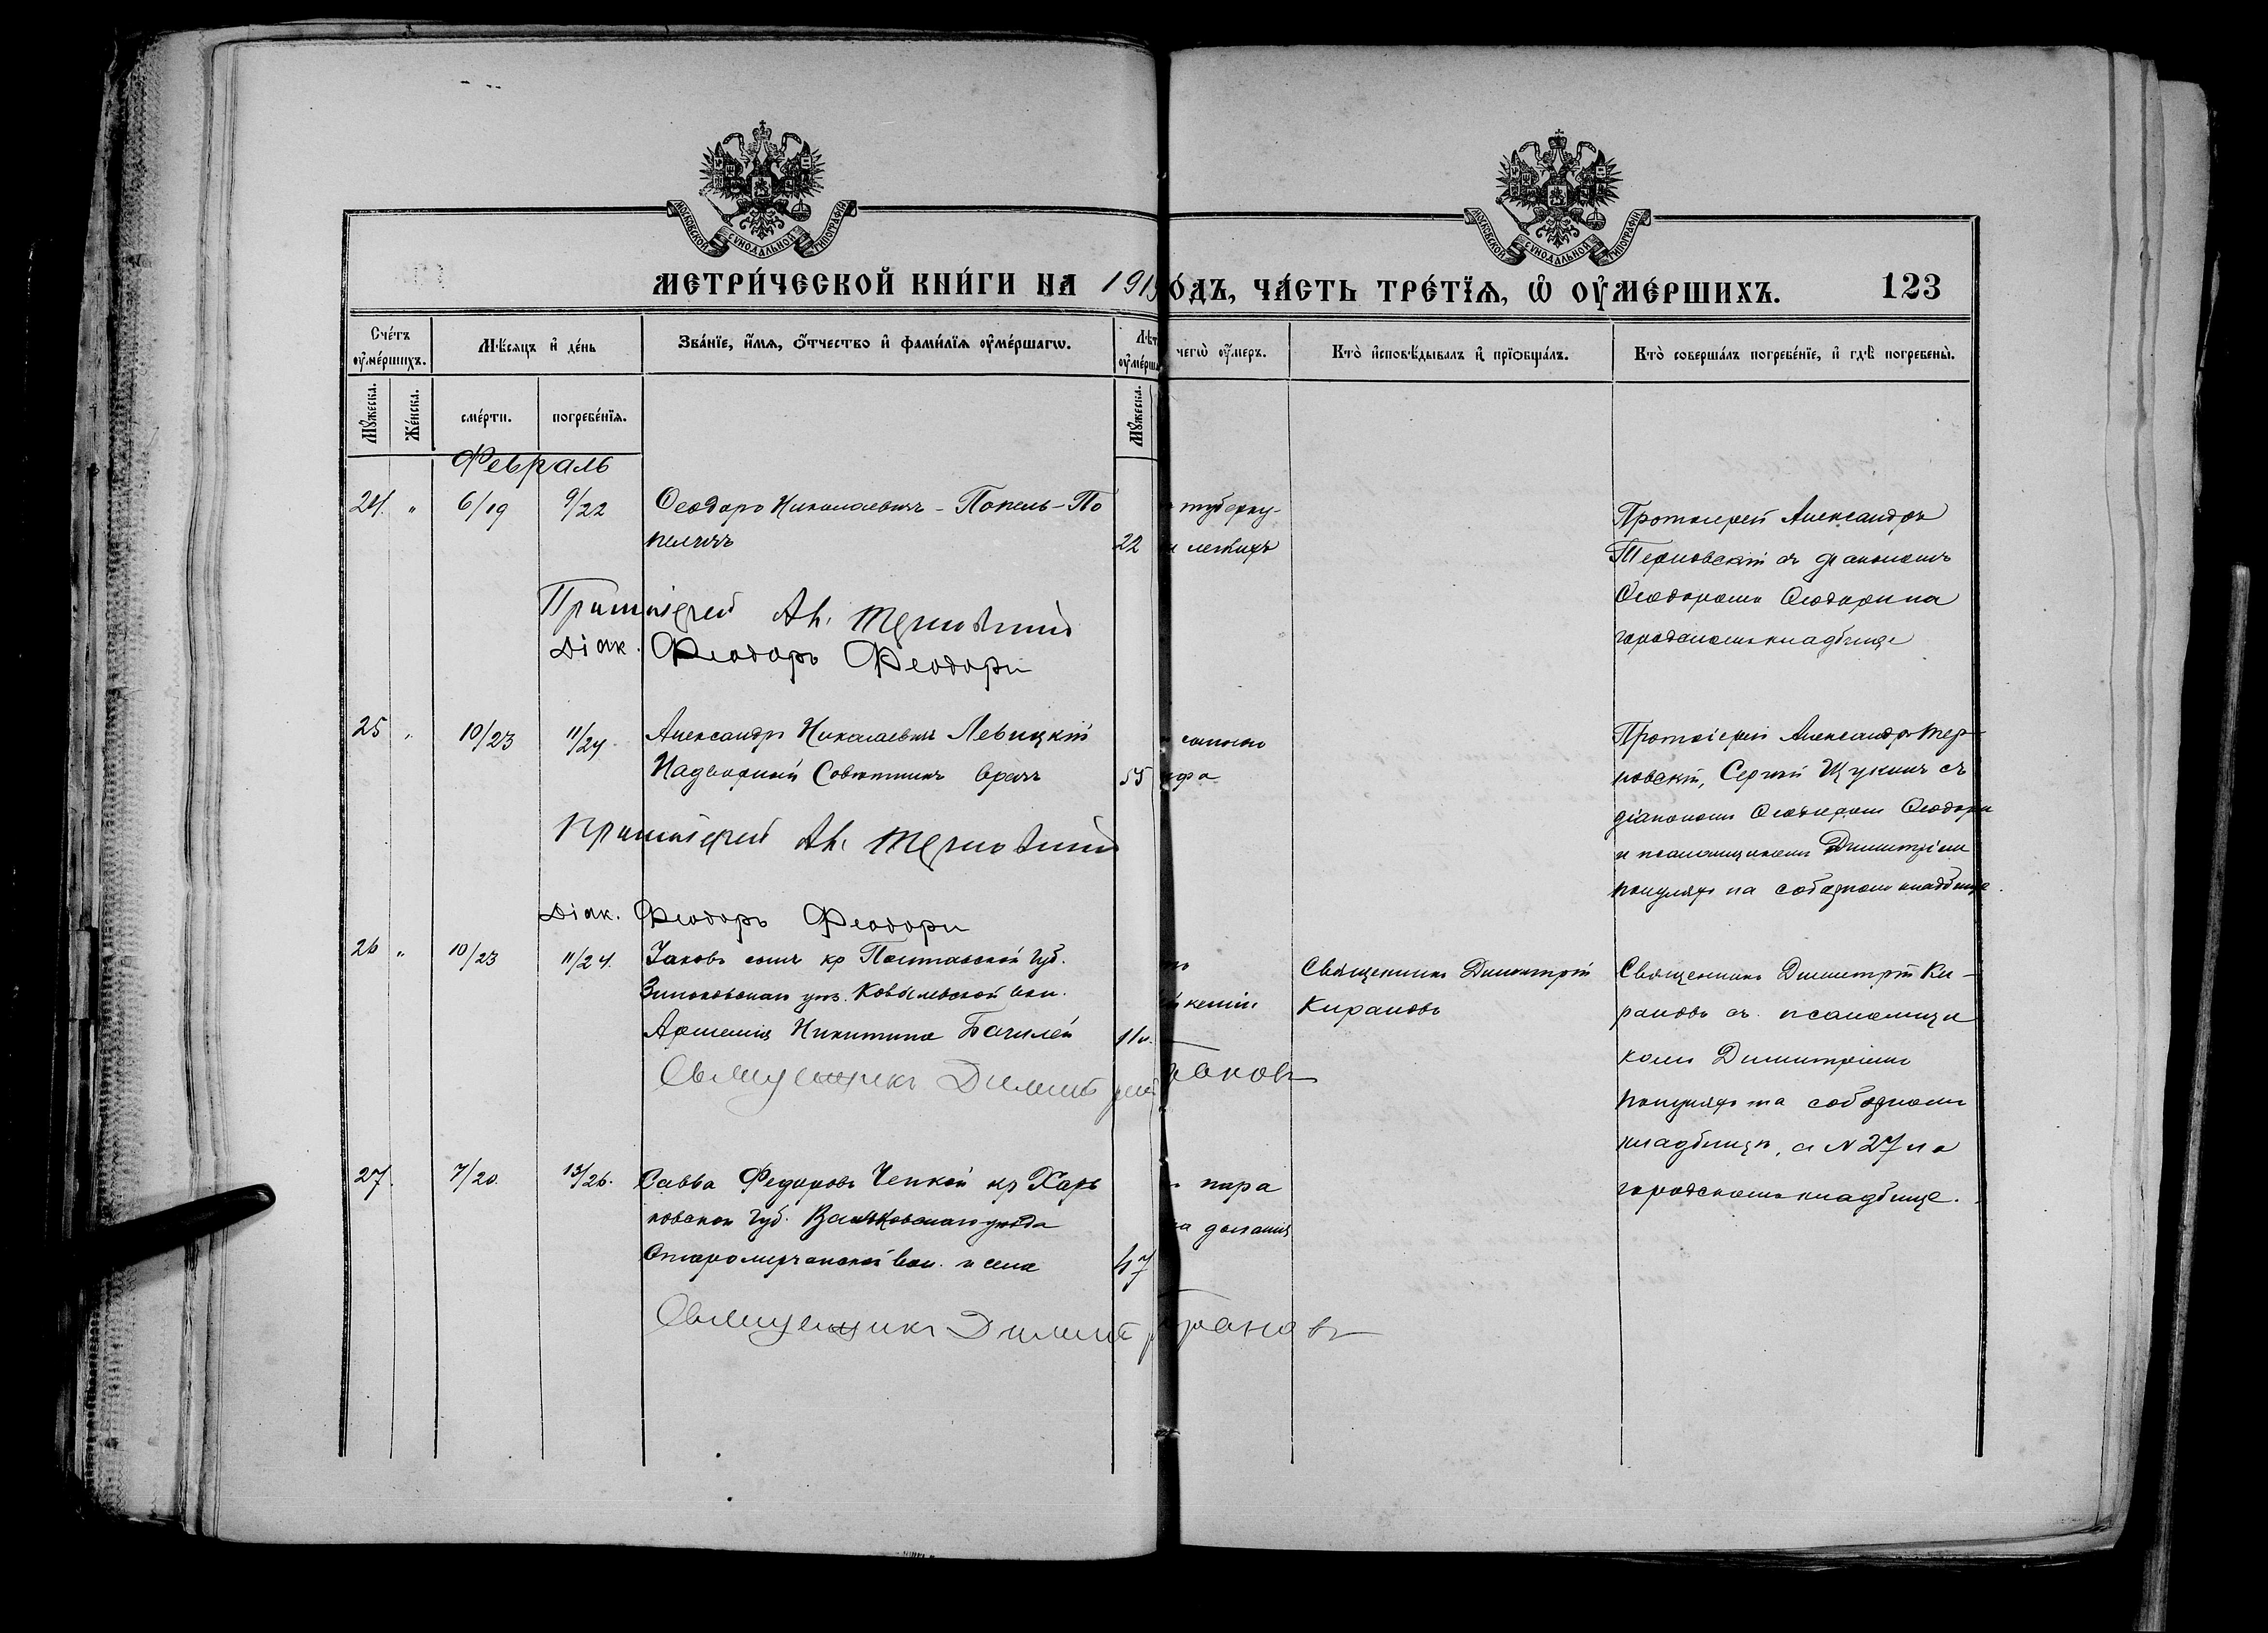 МОСКОВСКОЙ СѴНОДАЛЬНОЙ ТИПОГРАФІИ
МОСКОВСКОЙ СѴНОДАЛЬНОЙ ТИПОГРАФІИ
МЕТРИ́ЧЕСКОЙ КНИ́ГИ НА 191
О́ДЪ, ЧА́СТЬ ТРЕ́ТЇѦ, Ѡ҆ ОУ҆МЕ́РШИХЪ. 123
Сче́тъ оу҆ме́ршихъ.
Мѣ́сяцъ и҆ де́нь
Зва́нїе, и҆́мѧ, ѻ҆́тчество и҆ фами́лїѧ оу҆ме́ршагѡ.
Лѣт
оу҆ме́рша
чегѡ̀ оу҆́меръ.
Кто̀ и҆сповѣ́дывалъ и҆ прїѡбща́лъ.
Кто̀ соверша́лъ погребе́нїе, и҆ гдѣ̀ погребены̀.
Мꙋ́жеска.
Же́нска.
сме́рти.
погребе́нїѧ.
Мꙋ́жеска.
Февраль
24. " 6/19 9/22 Ѳеодоръ Николаевичъ - Попель-По
пеличъ 22
туберку-
легкихъ
Протоіерей Александръ
Терновскій съ діакономъ
Ѳеодоромъ Ѳеодори на
городскомъ кладбище
Протоіерей Ал. Терновскій
Діак. Феодоръ Феодори
25 " 10/23 11/24 Александръ Николаевичъ Левицкій
Надворный Совѣтникъ врачъ 55
сыпного
ифа
Протоіерей Александръ Тер-
новскій, Сергій Щукинъ съ
діакономъ Ѳеодоромъ Ѳеодори
и псаломщикомъ Димитріемъ
на соборномъ кладбище.
Протоіерей Ал. Терновскій
Діак. Феодоръ Феодори
26 " 10/23 11/24. Іаковъ сынъ кр Полтавской Губ.
Зиньковскаго уѣз. Ковалевской вол.
Никитина 11м.
Священникъ Димитрій
Кирановъ
Священникъ Димитрій Ки-
рановъ съ псаломщи
комъ Димитріемъ
на соборномъ
кладбищѣ, а N 27 на
городскомъ кладбище.
Священникъ Димит
рановъ
27. 7/20 13/26. Савва Федоровъ Чепкой кр Харь
ковской Губ. Валковскаго уѣзда
Старомерчанской вол. и села 47
пара
Священникъ Димит
рановъ